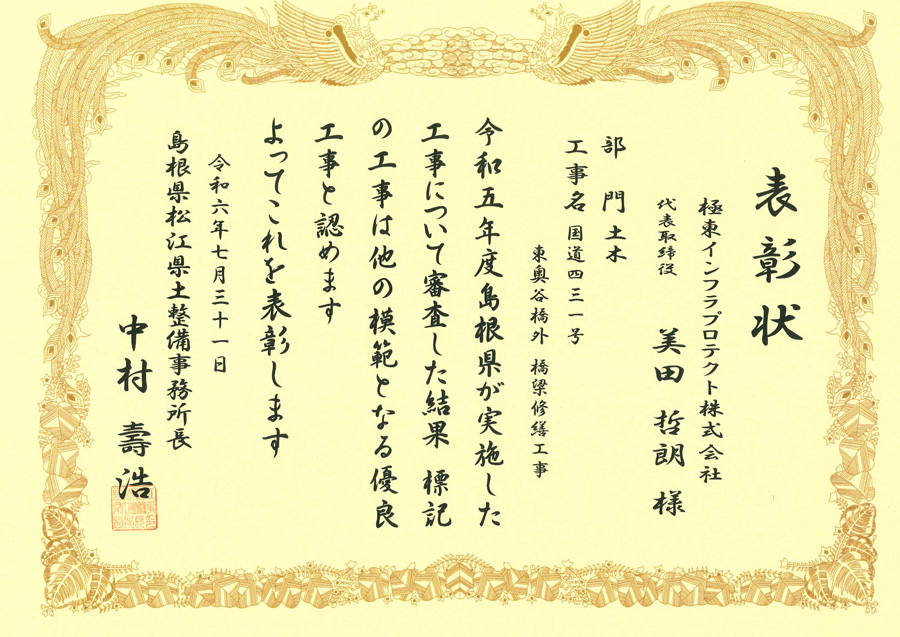 表彰状
極東インフラプロテクト株式会社
代表取締役 美田 哲朗 様
部門 土木
工事名 国道四三一号
東奥谷橋外 橋梁修繕工事
令和五年度島根県が実施した
工事について審査した結果 標記
の工事は他の模範となる優良
工事と認めます
よってこれを表彰します
令和六年七月三十一日
島根県松江県土整備事務所長
中村 壽浩